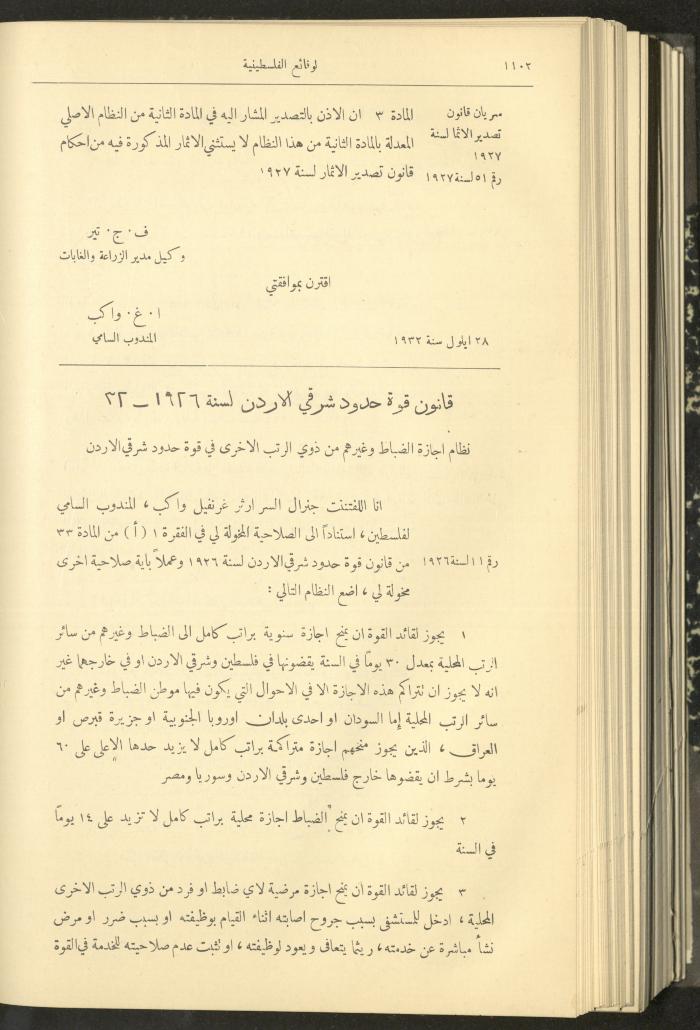 ١١٠٢
لوقائع الفلسطينية
سريان قانون
تصدير الاثما لسنة
١٩٢٧
رقم ٥١ لسنة ١٩٢٧
المادة ٣ ان الاذن بالتصدير المشار اليه في المادة الثانية من النظام الاصلي
المعدلة بالمادة الثانية من هذا النظام لا يستثني الاثمار المذكورة فيه من احكام
قانون تصدير الاثمار لسنة ١٩٢٧
ف. ج. تير
وكيل مدير الزراعة والغابات
اقترن بموافقتي
ا. غ. واكب
المندوب السامي
٢٨ ايلول سنة ١٩٣٢
قانون قوة حدود شرقي الاردن لسنة ١٩٢٦ – ٣٢
نظام اجازة الضباط وغيرهم من ذوي الرتب الاخرى في قوة حدود شرقي الاردن
انا اللفتننت جنرال السر ارثر غرنفيل واكب، المندوب السامي
لفلسطين، استناداً الى الصلاحية المخولة لي في الفقرة ١ (أ) من المادة ٣٣
رقم ١١ لسنة ١٩٢٦
من قانون قوة حدود شرقي الاردن لسنة ١٩٢٦ وعملاً باية صلاحية اخرى
مخولة لي، اضع النظام التالي:
١ يجوز لقائد القوة ان يمنح اجازة سنوية براتب كامل الى الضباط وغيرهم من سائر
الرتب المحلية بمعدل ٣٠ يوماً في السنة يقضونها في فلسطين وشرقي الاردن او في خارجهما غير
انه لا يجوز ان تتراكم هذه الاجازة الا في الاحوال التي يكون فيها موطن الضباط وغيرهم من
سائر الرتب المحلية إما السودان او احدى بلدان اوروبا الجنوبية او جزيرة قبرص او
العراق، الذين يجوز منحهم اجازة متراكمة براتب كامل لا يزيد حدها الاعلى على ٦٠
يوما بشرط ان يقضوها خارج فلسطين وشرقي الاردن وسوريا ومصر
٢ يجوز لقائد القوة ان يمنح الضباط اجازة محلية براتب كامل لا تزيد على ١٤ يوماً
في السنة
٣ يجوز لقائد القوة ان يمنح اجازة مرضية لاي ضابط او فرد من ذوي الرتب الاخرى
المحلية، ادخل للمستشفى بسبب جروح اصابته اثناء القيام بوظيفته او بسبب ضرر او مرض
نشأ مباشرة عن خدمته، ريثما يتعافى ويعود لوظيفته، او تثبت عدم صلاحيته للخدمة في القوة